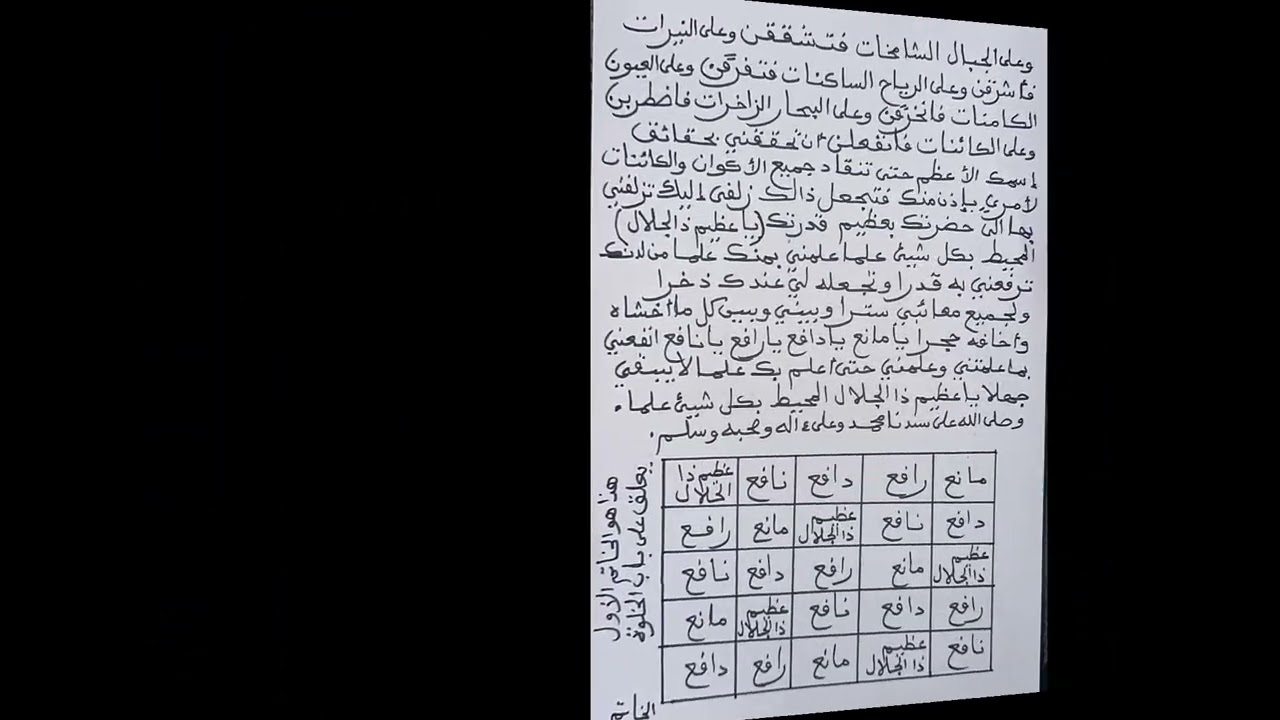 وعلى الجبال الشامخات فتشققن وعلى النيرات
فأشرقن وعلى الرياح الساكنات فتفرقن وعلى العيون
الكامنات فانخرقن وعلى البحار الزاخرات فاضطربن
وعلى الكائنات فانفعلن أن تحققني بحقائق
إسمك الأعظم حتى تنقاد جميع الأكوان والكائنات
لأمري بإذن منك فتجعل ذالك زلفى إليك تزلفني
بها الى حضرتك بعظيم قدرتك (يا عظيم ذا الجلال)
المحيط بكل شيئ علما علمني بمنك علما من لدنك
ترفعني به قدرا وتجعله لي عندك ذخرا
ولجميع معائبي سترا وبيني وبين كل ما أخشاه
وأخافه حجرا يا مانع يا دافع يا رافع يا نافع انفعني
بما علمتني وعلمني حتى أعلم بك علما لا يبقي
جهلا يا عظيم ذا الجلال المحيط بكل شيئ علما.
وصلى الله على سيدنا محمد وعلى ءاله وصحبه وسلم.
مانع رافع دافع نافع عظيم ذا الجلال
دافع نافع عظيم ذا الجلال مانع رافع
عظيم ذا الجلال مانع رافع دافع نافع
رافع دافع نافع عظيم ذا الجلال مانع
نافع عظيم ذا الجلال مانع رافع دافع
هذا هو الخاتم الأول
يعلق على باب الخلوة
الخاتم